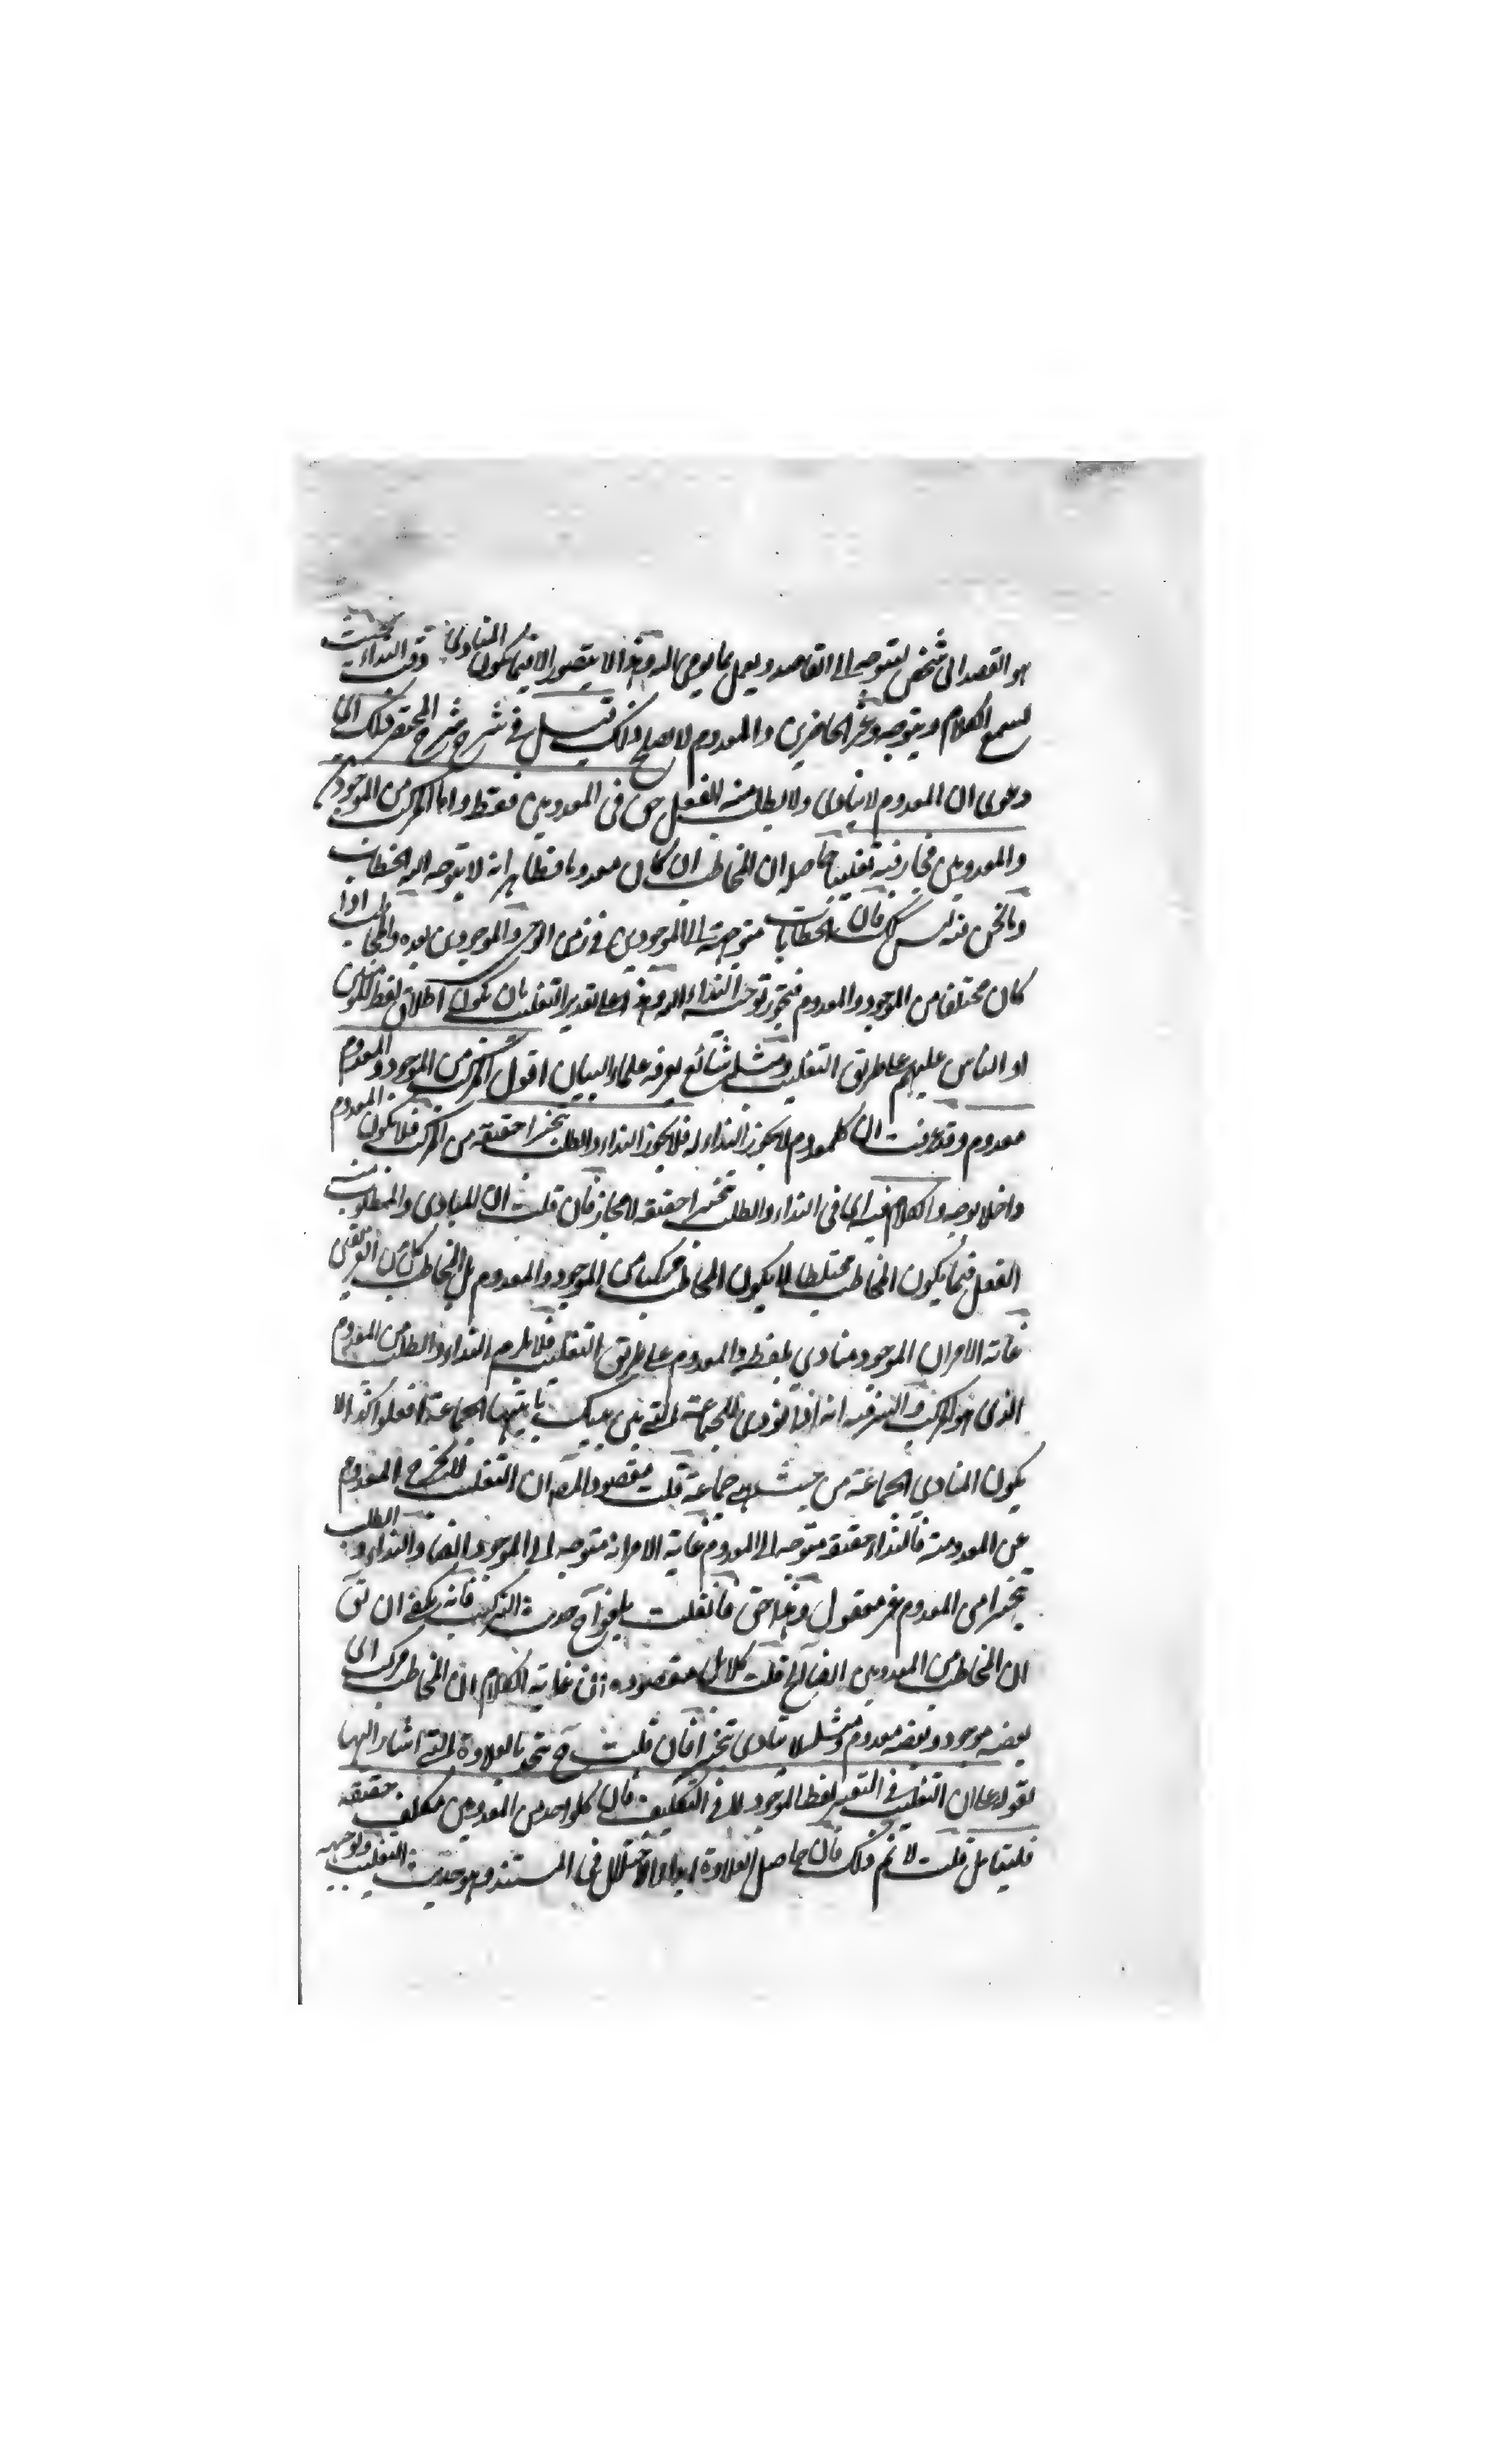 هو القصد الى شخص ليتوجه الى القاصد ويعمل بما يومى اليه وهذا لا يتصور الا فيما يكون المنادى وقت النداء بحيث
يسمع الكلام ويتوجه وغير الحاضرين والمعدوم لا يصلح لذلك قيل في شرح شرح المختصر فلك الى
دعوى ان المعدوم لا ينادى ولا يطلب منه الفعل حق فى المعدومين فقط واما المركب من الموجودين
والمعدومين فجائز فيه تغليبا حاصله ان المخاطب ان كان معدوما فظاهر انه لا يتوجه اليه الخطاب
وما نحن فيه ليس كك فان الخطابات متوجهة الى الموجودين في زمن الوحى والموجودين بعده والمخاطب اذا
كان مختلفا من الموجود والمعدوم فيجوز توجه النداء اليه وهذا على تقدير التغليب بان يكون اطلاق لفظ المؤمنين
او الناس عليهم على طريق التغليب ومثله شائع يعرفه علماء البيان اقول المركب من الموجود والمعدوم
معدوم وقد عرفت ان كل معدوم لا يجوز النداء له فلا يجوز النداء والطلب تنجيزا حقيقة من المركب فلا يكون المعدوم
داخلا بوجه والكلام فيه اى فى النداء والطلب تنجيزا حقيقة لا مجاز فان قلت ان المنادى والمطلوب منه
الفعل فيما يكون المخاطب مختلطا لا يكون المخاطب مركبا من الموجود والمعدوم بل المخاطب كل من الفريقين
غاية الامر ان الموجود منادى بلفظه والمعدوم على طريق التغليب فلا يلزم النداء والطلب من المعدوم
الذى هو المركب والسر فيه انه اذا نودى للجماعة التي بين يديك يا ايتها الجماعة افعلوا كذا لا
يكون المنادى الجماعة من حيث هى جماعة قلت مقصود المص ان التغليب لا يخرج المعدوم
عن المعدومية فالنداء حقيقة متوجه الى المعدوم غاية الامر انه متوجه الى الموجود ايضا والنداء والطلب
تنجيزا من المعدوم غير معقول وهذا حق فان قلت يلغوا ح حديث التركيب فانه يكفى ان يق
ان المخاطب من المعدومين ايضا الخ قلت كلا بل مقصوده ان غاية الكلام ان المخاطب مركب اى
بعضه موجود وبعضه معدوم ومثله لا ينادى تنجيزا فان قلت ح يتحد بالعلاوة التي اشار اليها
بقوله على ان التغليب في التعبير بلفظ الموجود لا في التكليف فان كل واحد من المعدومين مكلف حقيقة
فليتامل قلت لا نم ذلك فان حاصل العلاوة ابداء الاختلال فى المستند وهو حديث التغليب وتوجيه